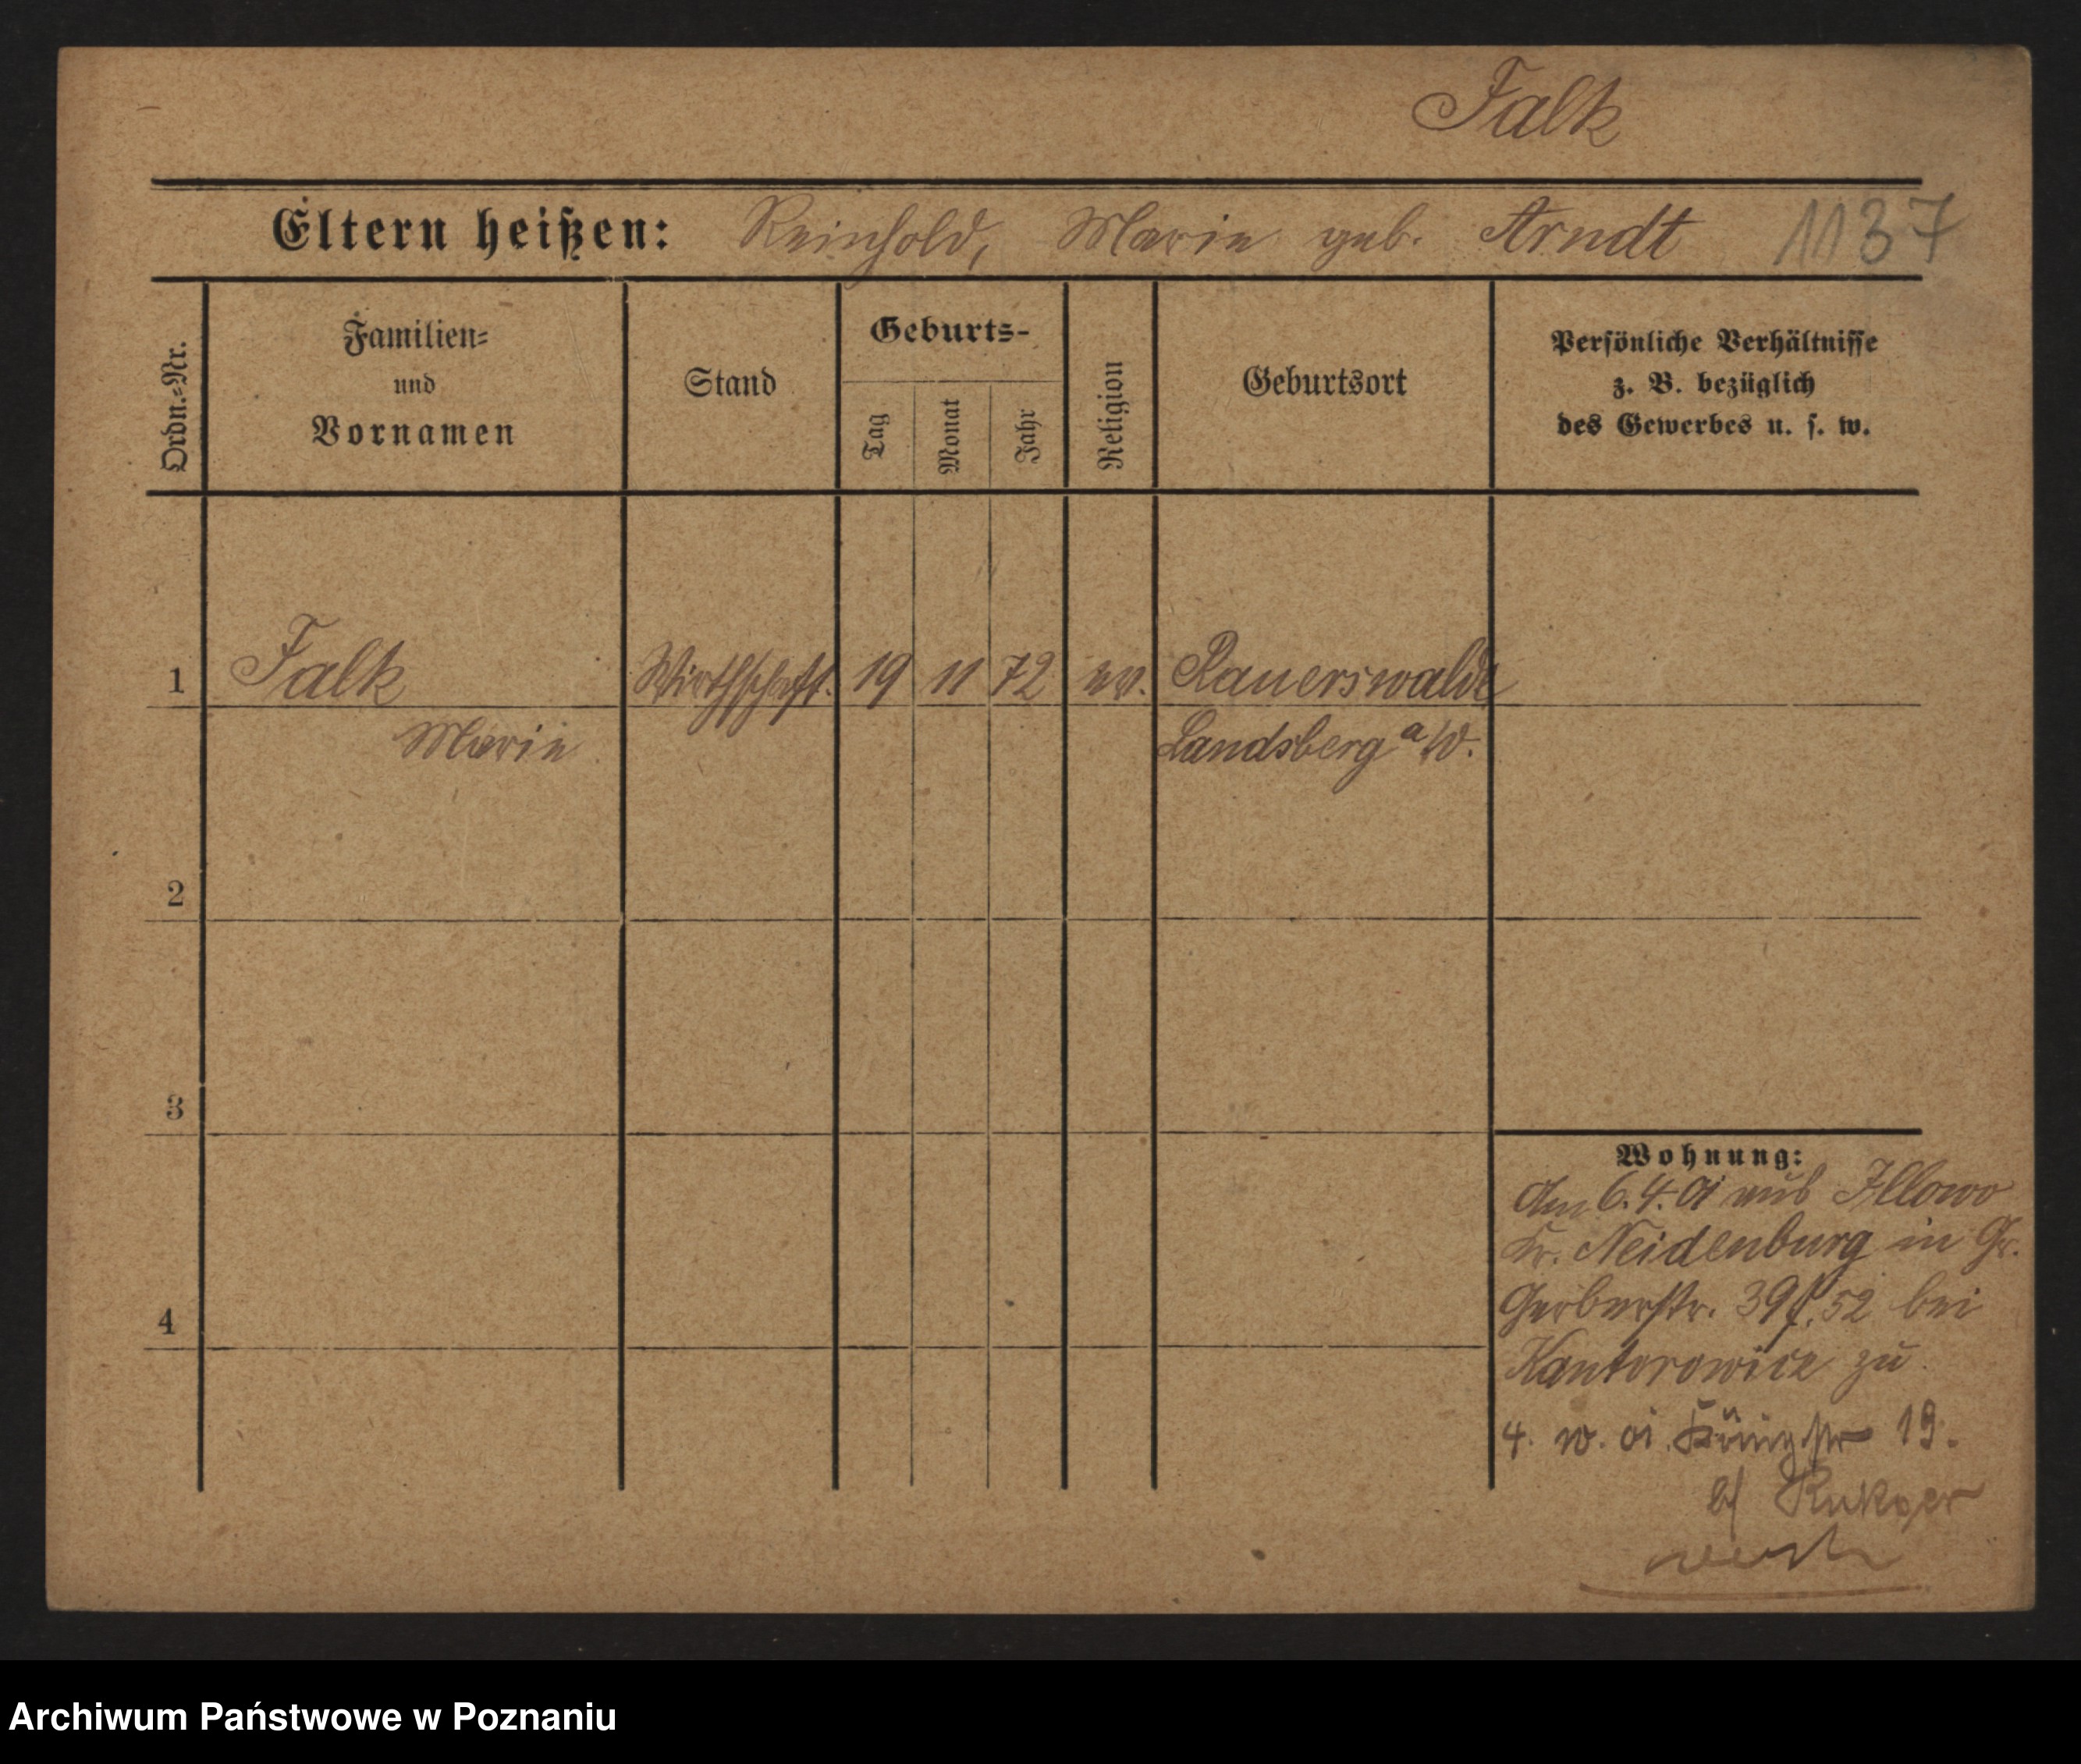 Falk
Eltern heißen: Reinhold, Marie geb. Arndt 1137
Ordn.=Nr.
Familien=
und
Vornamen
Stand
Geburts-
Tag
Monat
Jahr
Religion
Geburtsort
Persönliche Verhältnisse
z. B. bezüglich
des Gewerbes u. s. w.
1 Falk Wirthschaft. 19 11 72 ev. Rauerswalde
Marie Landsberg a/W.
2
3
4
Wohnung:
Am 6.4.01 aus Illowo
Kr. Neidenburg in Gr.
Gerberstr. 39 52 bei
Kantorowicz zu
4. 10. 01. Königstr 19.
b/
Archiwum Państwowe w Poznaniu